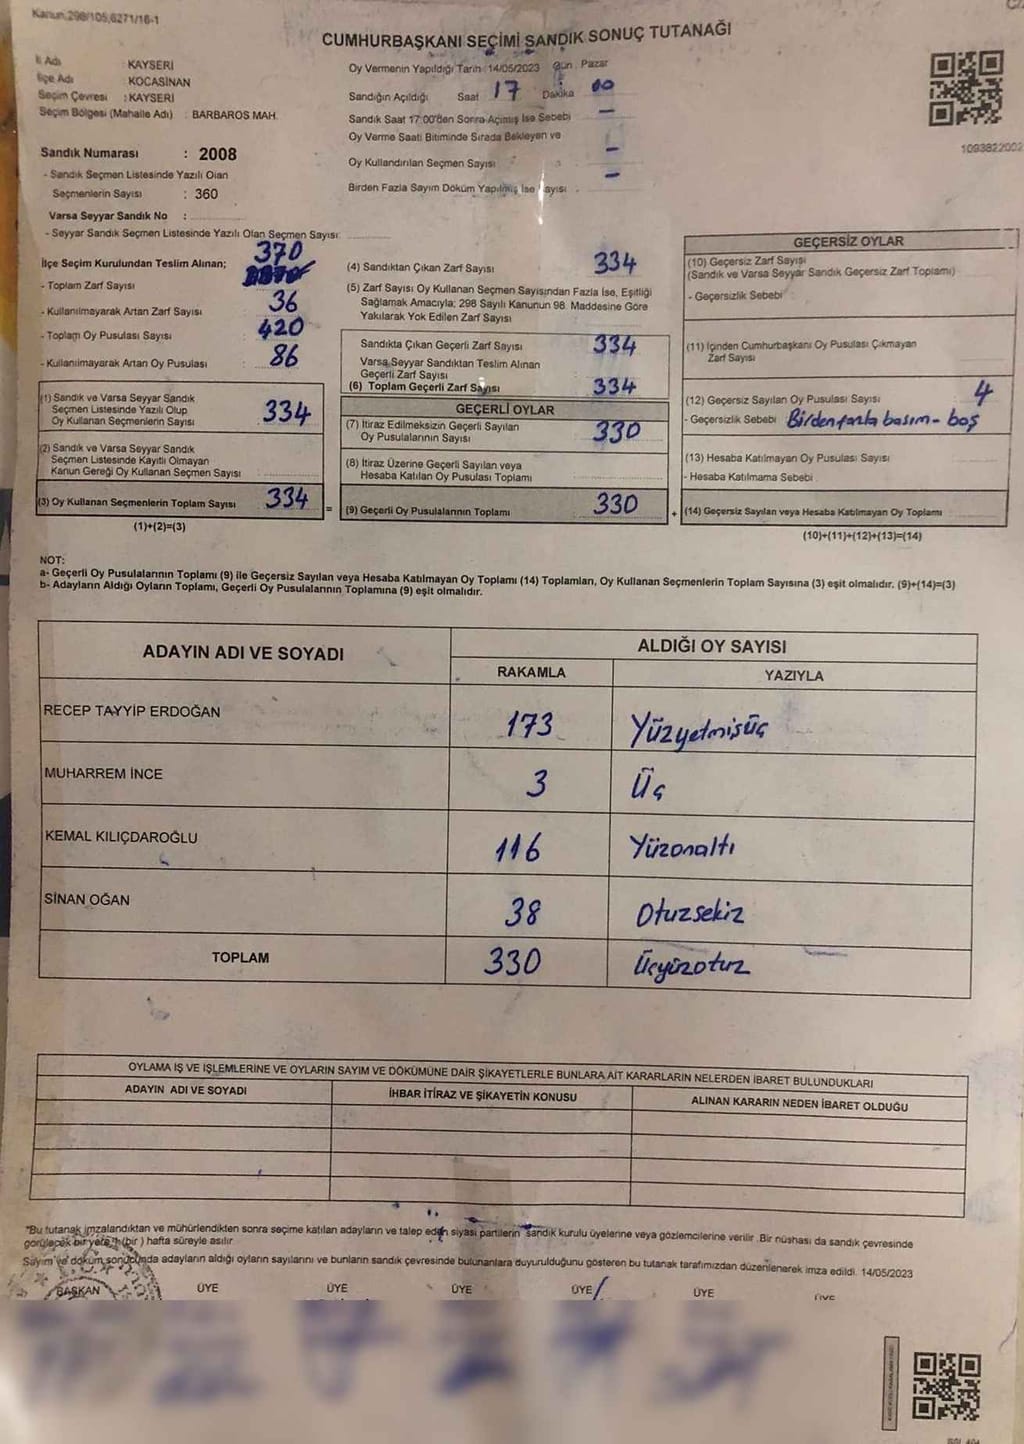 Kanun,298/105,6271/16-1
CUMHURBAŞKANI SEÇİMİ SANDIK SONUÇ TUTANAĞI
İl Adı : KAYSERİ
İlçe Adı : KOCASİNAN
Seçim Çevresi : KAYSERİ
Seçim Bölgesi (Mahalle Adı) : BARBAROS MAH.
Oy Vermenin Yapıldığı Tarih :14/05/2023 Gün : Pazar
Sandığın Açıldığı Saat 17 Dakika 00
Sandık Saat 17:00'den Sonra Açılmış İse Sebebi —
Oy Verme Saati Bitiminde Sırada Bekleyen ve
Oy Kullandırılan Seçmen Sayısı : —
Birden Fazla Sayım Döküm Yapılmış İse Sayısı : —
1093822002
Sandık Numarası : 2008
- Sandık Seçmen Listesinde Yazılı Olan
Seçmenlerin Sayısı : 360
Varsa Seyyar Sandık No :
- Seyyar Sandık Seçmen Listesinde Yazılı Olan Seçmen Sayısı:
İlçe Seçim Kurulundan Teslim Alınan;
- Toplam Zarf Sayısı 370
- Kullanılmayarak Artan Zarf Sayısı : 36
- Toplam Oy Pusulası Sayısı : 420
- Kullanılmayarak Artan Oy Pusulası : 86
(1) Sandık ve Varsa Seyyar Sandık
Seçmen Listesinde Yazılı Olup
Oy Kullanan Seçmenlerin Sayısı 334
(2) Sandık ve Varsa Seyyar Sandık
Seçmen Listesinde Kayıtlı Olmayan
Kanun Gereği Oy Kullanan Seçmen Sayısı
(3) Oy Kullanan Seçmenlerin Toplam Sayısı 334
(1)+(2)=(3)
=
(4) Sandıktan Çıkan Zarf Sayısı 334
(5) Zarf Sayısı Oy Kullanan Seçmen Sayısından Fazla İse, Eşitliği
Sağlamak Amacıyla; 298 Sayılı Kanunun 98. Maddesine Göre
Yakılarak Yok Edilen Zarf Sayısı
Sandıkta Çıkan Geçerli Zarf Sayısı 334
Varsa Seyyar Sandıktan Teslim Alınan
Geçerli Zarf Sayısı
(6) Toplam Geçerli Zarf Sayısı 334
GEÇERLİ OYLAR
(7) İtiraz Edilmeksizin Geçerli Sayılan
Oy Pusulalarının Sayısı 330
(8) İtiraz Üzerine Geçerli Sayılan veya
Hesaba Katılan Oy Pusulası Toplamı
(9) Geçerli Oy Pusulalarının Toplamı 330
+
GEÇERSİZ OYLAR
(10) Geçersiz Zarf Sayısı
(Sandık ve Varsa Seyyar Sandık Geçersiz Zarf Toplamı)
- Geçersizlik Sebebi
(11) İçinden Cumhurbaşkanı Oy Pusulası Çıkmayan
Zarf Sayısı
(12) Geçersiz Sayılan Oy Pusulası Sayısı 4
- Geçersizlik Sebebi Birden fazla basım - boş
(13) Hesaba Katılmayan Oy Pusulası Sayısı
- Hesaba Katılmama Sebebi
(14) Geçersiz Sayılan veya Hesaba Katılmayan Oy Toplamı
(10)+(11)+(12)+(13)=(14)
NOT:
a- Geçerli Oy Pusulalarının Toplamı (9) ile Geçersiz Sayılan veya Hesaba Katılmayan Oy Toplamı (14) Toplamları, Oy Kullanan Seçmenlerin Toplam Sayısına (3) eşit olmalıdır. (9)+(14)=(3)
b- Adayların Aldığı Oyların Toplamı, Geçerli Oy Pusulalarının Toplamına (9) eşit olmalıdır.
ADAYIN ADI VE SOYADI ALDIĞI OY SAYISI
RAKAMLA YAZIYLA
RECEP TAYYİP ERDOĞAN 173 Yüzyetmişüç
MUHARREM İNCE 3 Üç
KEMAL KILIÇDAROĞLU 116 Yüzonaltı
SİNAN OĞAN 38 Otuzsekiz
TOPLAM 330 Üçyüzotuz
OYLAMA İŞ VE İŞLEMLERİNE VE OYLARIN SAYIM VE DÖKÜMÜNE DAİR ŞİKAYETLERLE BUNLARA AİT KARARLARIN NELERDEN İBARET BULUNDUKLARI
ADAYIN ADI VE SOYADI İHBAR İTİRAZ VE ŞİKAYETİN KONUSU ALINAN KARARIN NEDEN İBARET OLDUĞU
*Bu tutanak imzalandıktan ve mühürlendikten sonra seçime katılan adayların ve talep eden siyasi partilerin sandık kurulu üyelerine veya gözlemcilerine verilir. Bir nüshası da sandık çevresinde
görülecek bir yere 1 (bir) hafta süreyle asılır.
Sayım ve döküm sonucunda adayların aldığı oyların sayılarını ve bunların sandık çevresinde bulunanlara duyurulduğunu gösteren bu tutanak tarafımızdan düzenlenerek imza edildi. 14/05/2023
BAŞKAN ÜYE ÜYE ÜYE ÜYE ÜYE ÜYE